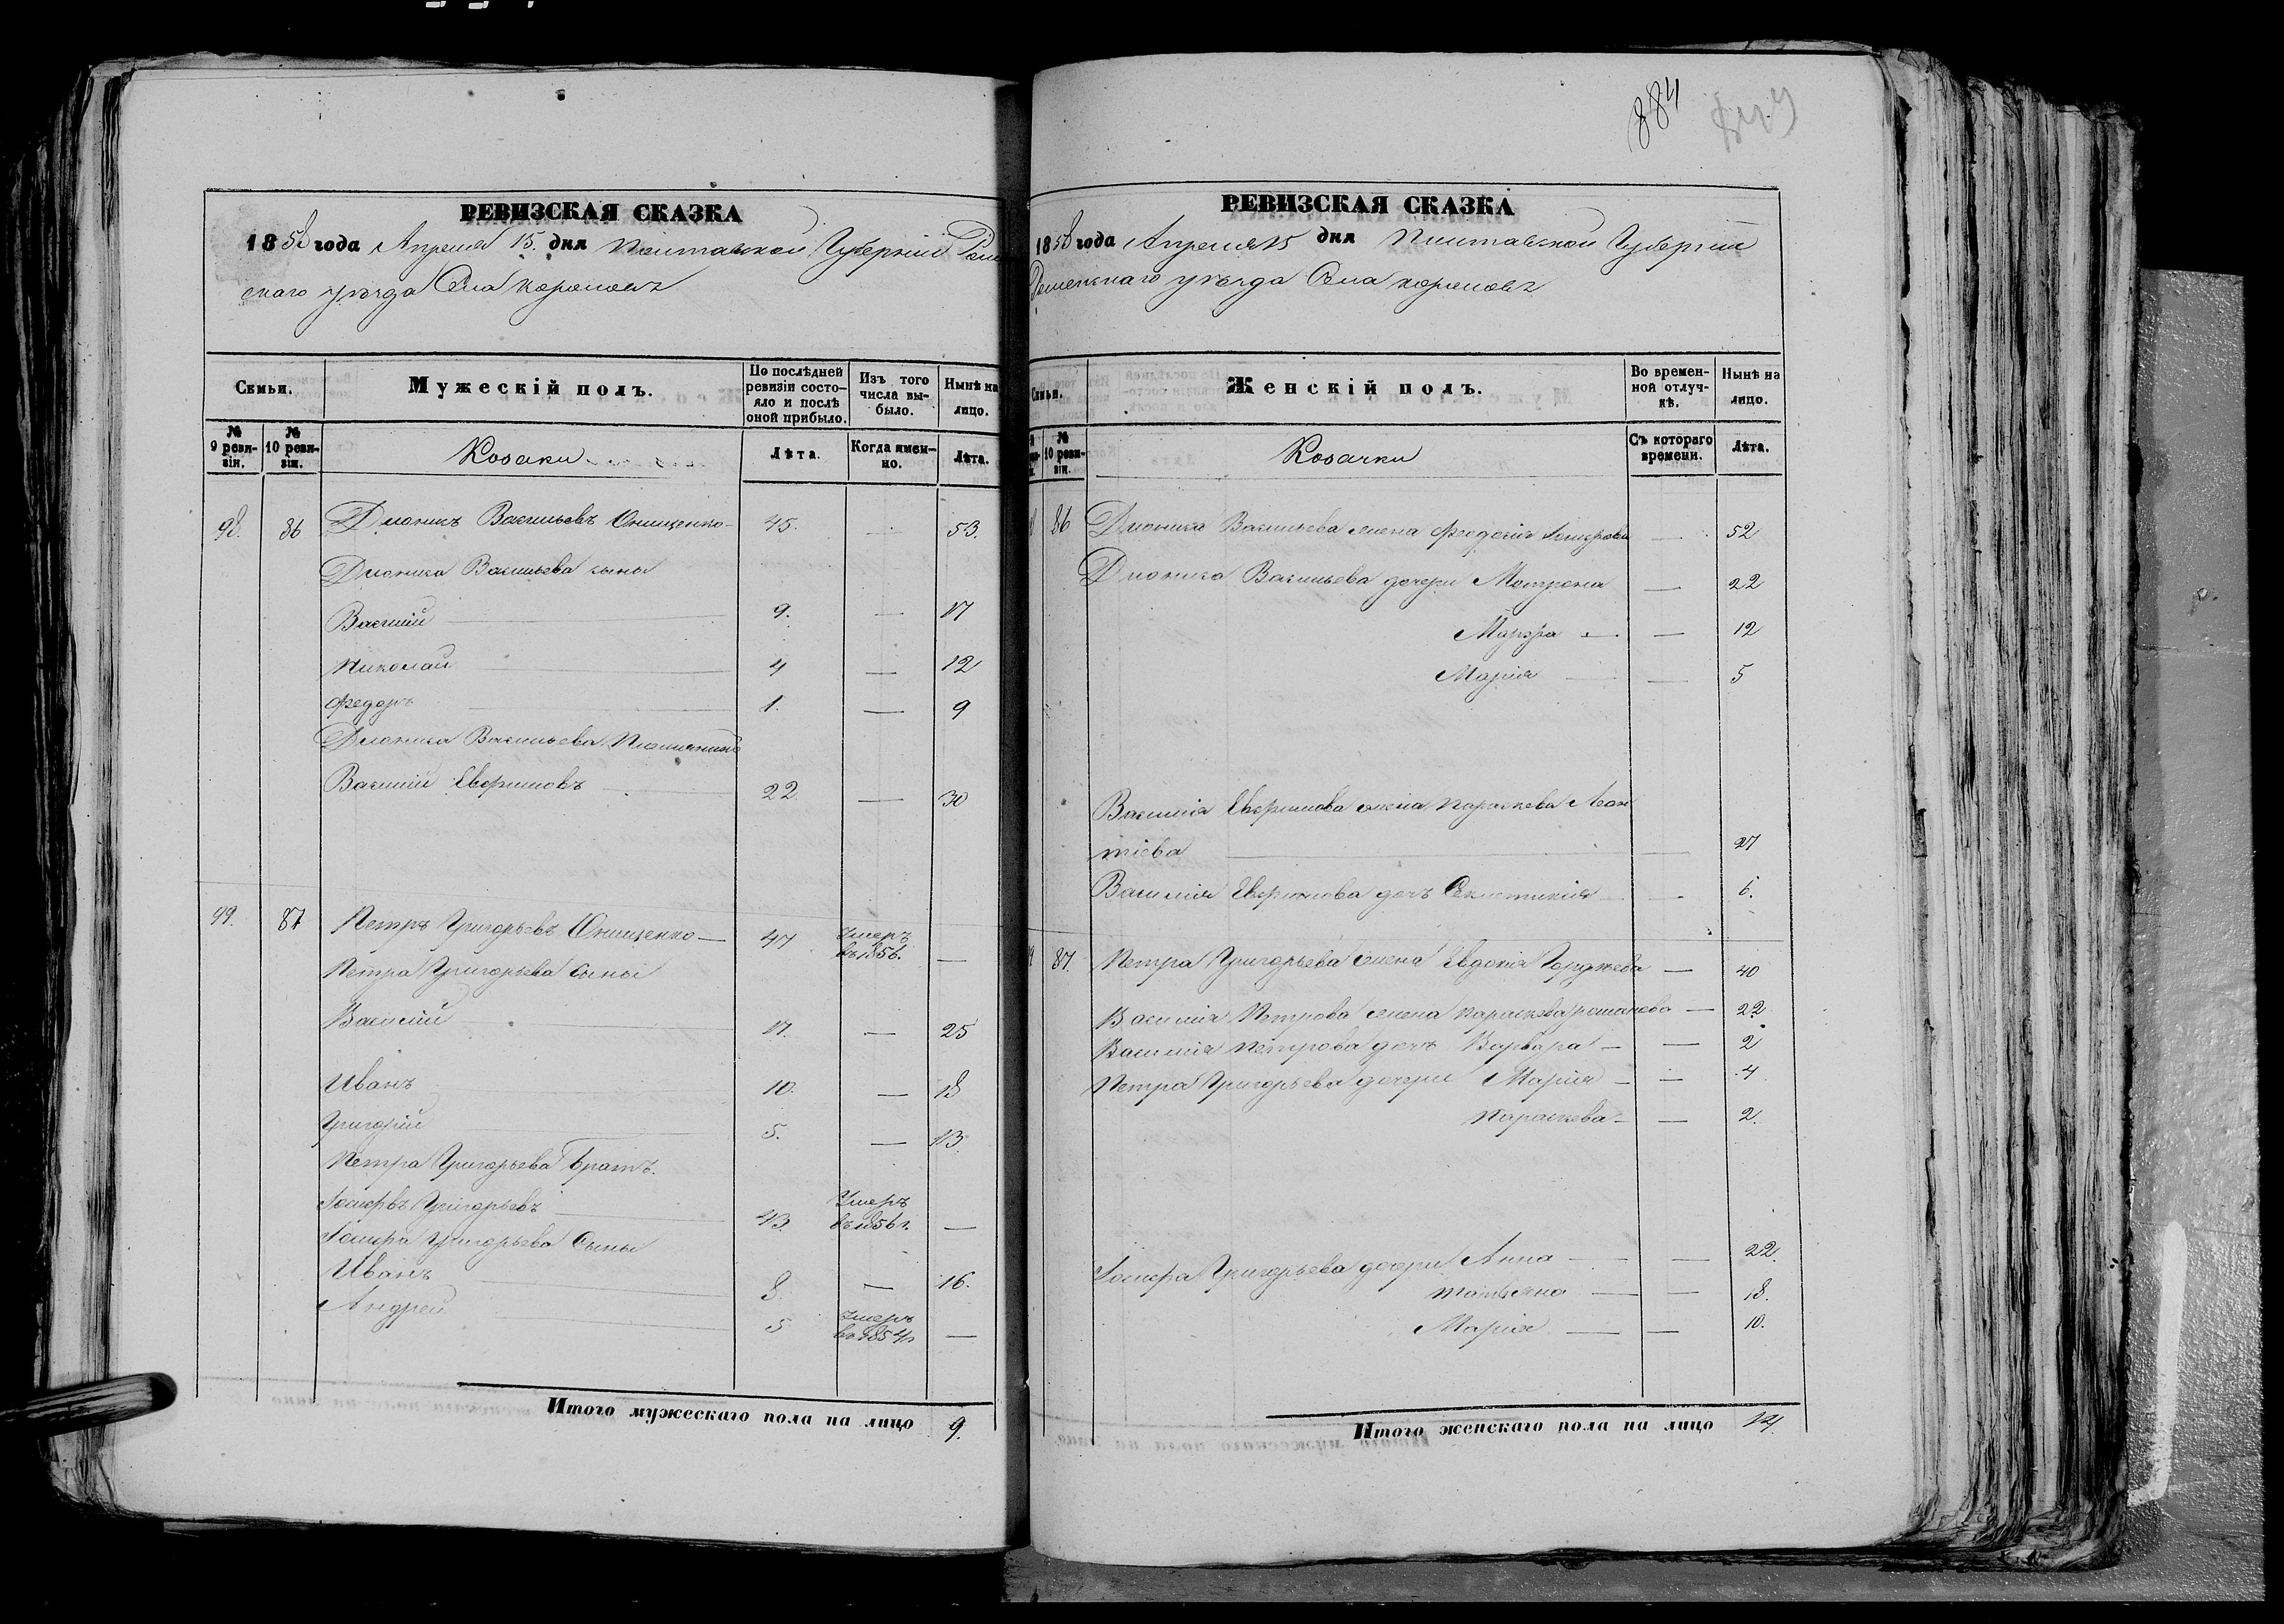 РЕВИЗСКАЯ СКАЗКА
1858 года Апреля 15. дня Полтавской Губерніи Роме
скаго уѣзда Села Коровинъ
Семьи.
Мужескій полъ.
По послѣдней ревизіи состояло и послѣ оной прибыло.
Изъ того числа выбыло.
Нынѣ на лицо.
№ 9 ревизіи.
№ 10 ревизіи.
Козаки
Лѣта.
Когда именно.
Лѣта.
98. 86 Дионисъ Васильевъ Онищенко 45. — 53.
Дионисы Васильева сыны
Василій 9. — 17
Николай 4 — 12
Федоръ 1. — 9
Васильева Племянникъ
Василій Евфимовъ 22 — 30
99. 87 Петръ Григорьевъ Онищенко — 47 Умеръ въ 1856. —
Петра Григорьева Сыны
Василій 17. — 25
Иванъ 10. — 18
Григорій 5. — 13.
Петра Григорьева братъ.
Іосифъ Григорьевъ 43. Умеръ въ 1856 г. —
Іосифа Григорьева Сыны
Иванъ 8. — 16.
Андрей 5 Умеръ въ 1854 г —
Итого мужескаго пола на лицо 9.
884
РЕВИЗСКАЯ СКАЗКА
1858 года Апреля 15 дня Полтавской Губерніи
Роменскаго уѣзда Села
Семьи.
Женскій полъ.
Во временной отлучкѣ.
Нынѣ на лицо.
№ 10 ревизіи.
Козачки
Съ котораго времени.
Лѣта.
86 Васильева жена Феодосія — 52
Васильева дочери Мотрона — 22
Марфа — — 12
Марія — 5
Василія Евфимова жена Параскева Леон
тіева — 27
Василія Евфимова дочь — 6.
87. Петра Григорьева жена Евдокія — 40
Василія Петрова жена Параскева Романова — 22
Василія Петрова дочь Варвара — — 2
Петра Григорьева дочери Марія — — 4
Параскева — — 2.
Іосифа Григорьева дочери Анна — — 22.
Татьяна — — 18.
Марія — — 10.
Итого женскаго пола на лицо 14.